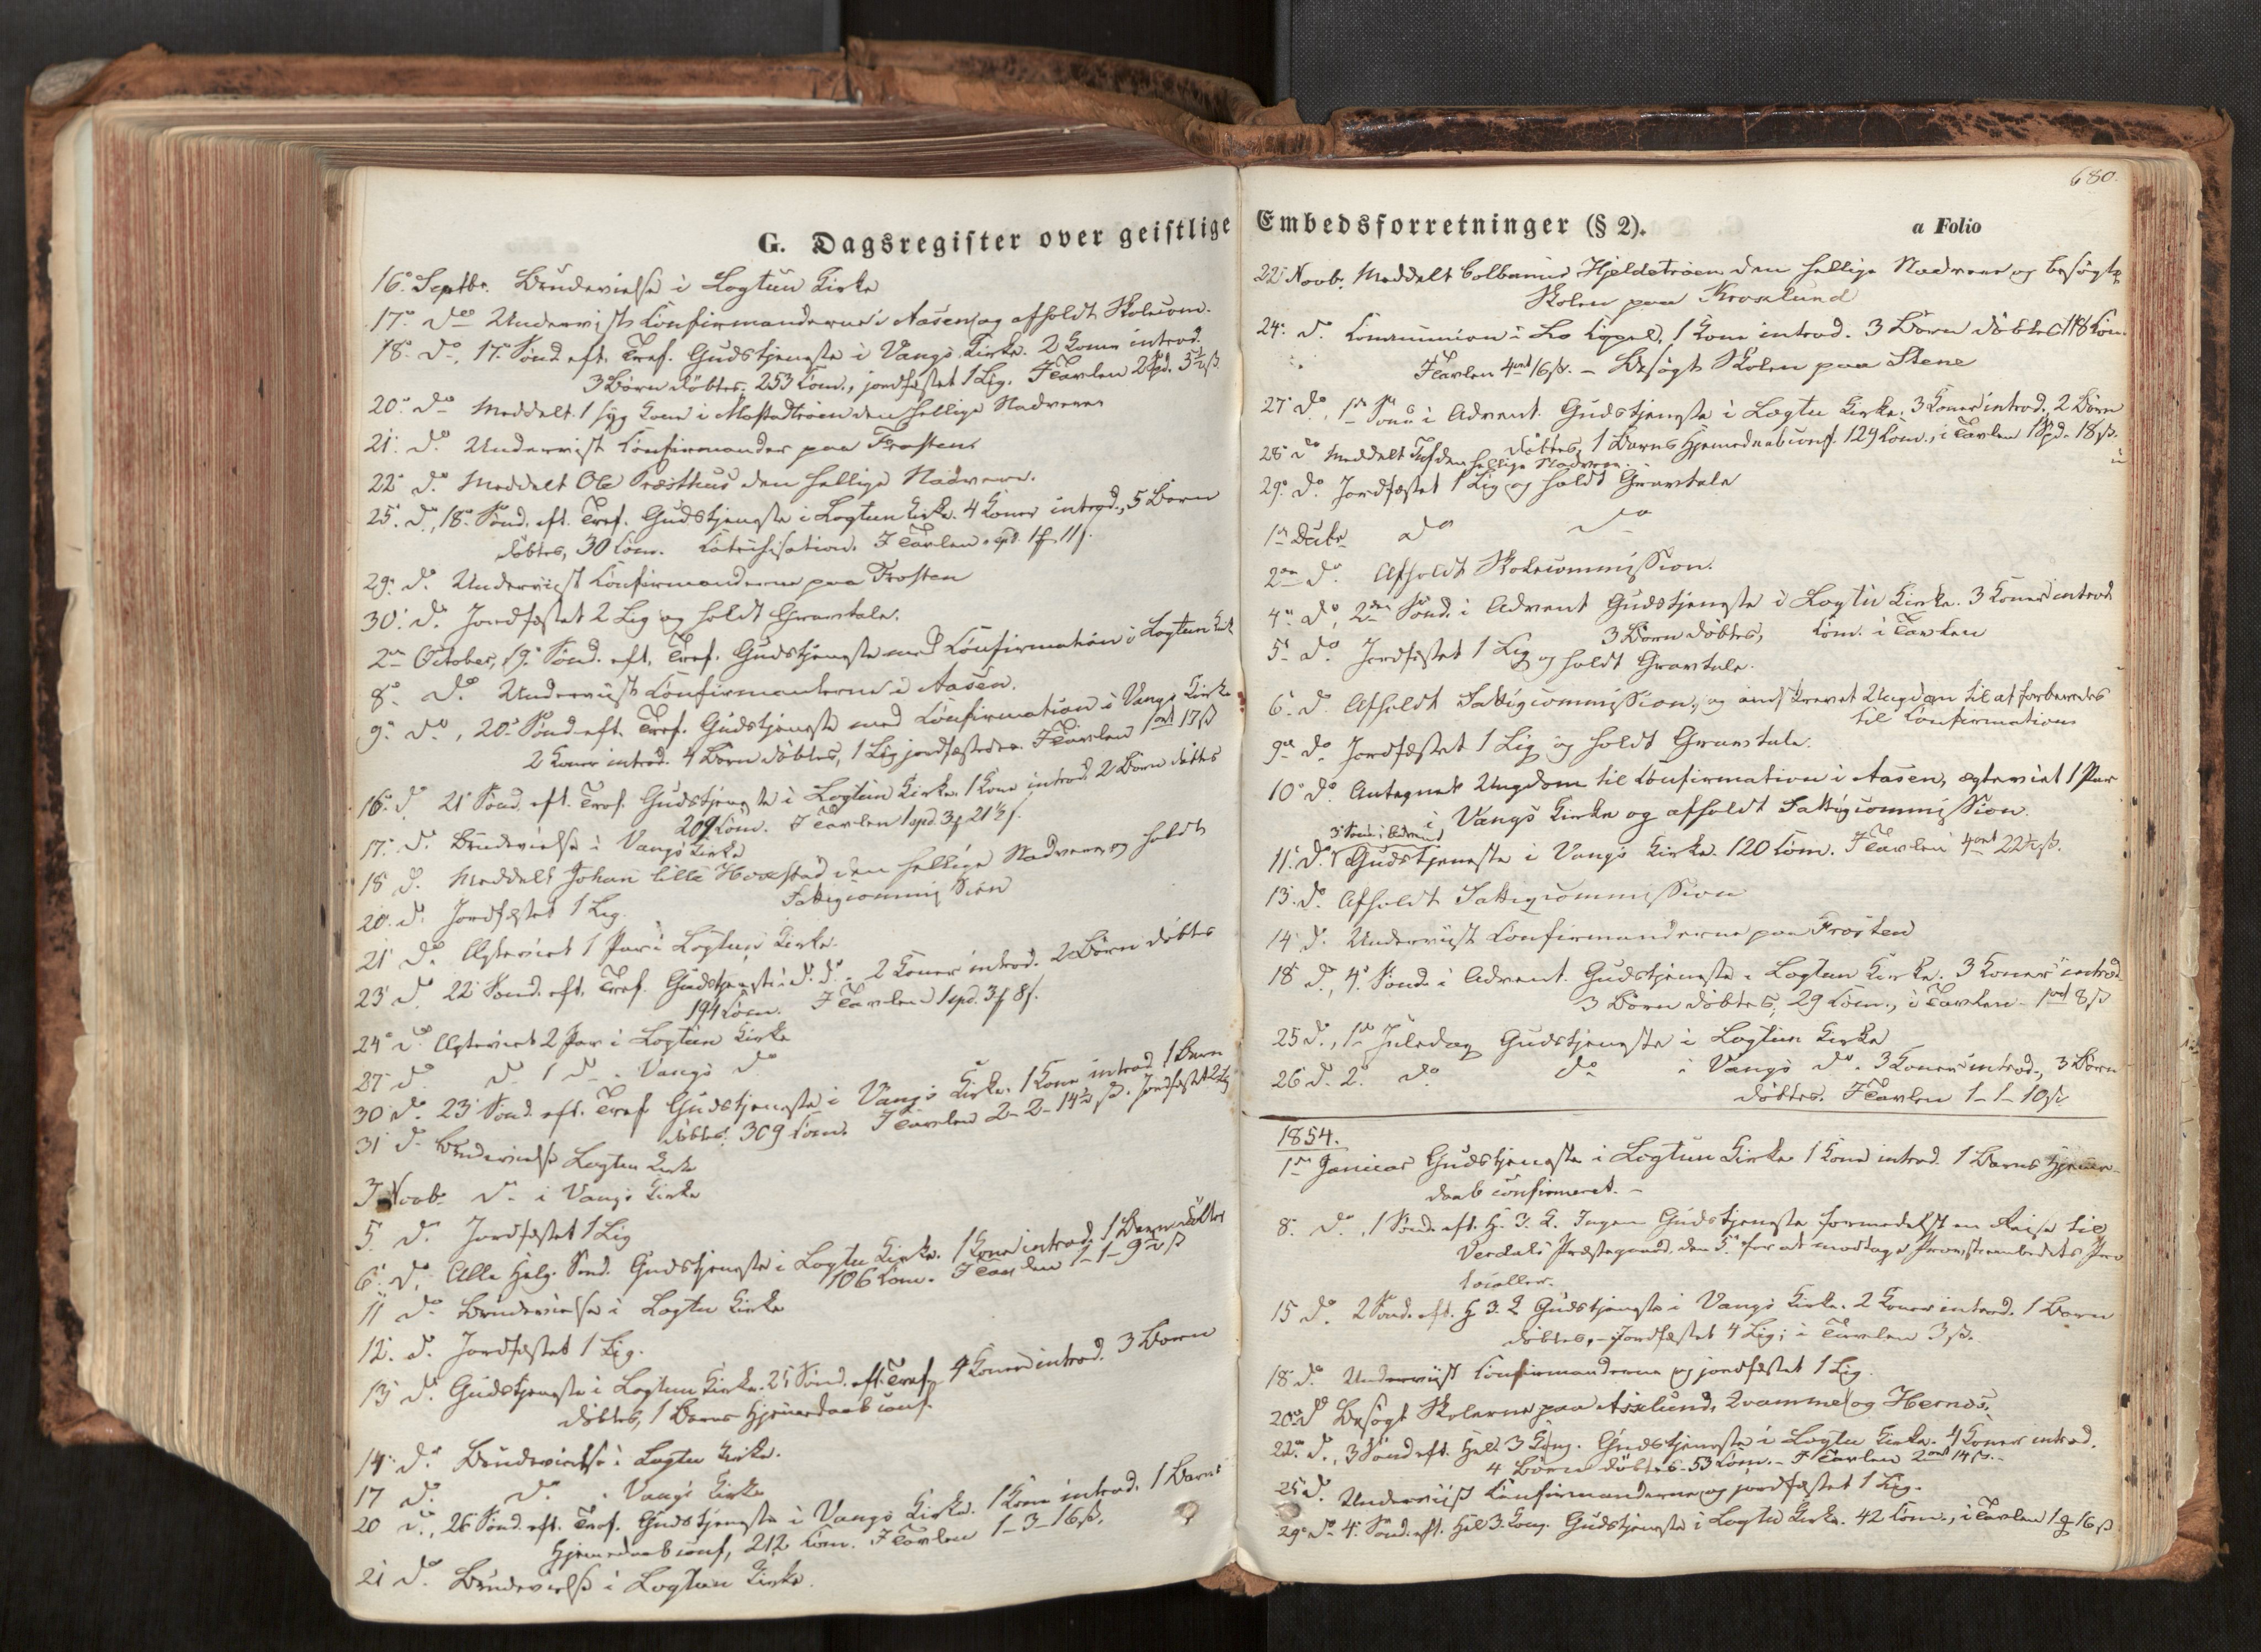 G. Dagsregister over geistlige
16de Septbr. Brudevielse i Logtun Kirke
17de do Underviist Confirmanderne i Aasen og afholdt Skolecom.
18de do, 17de Sønd. eft. Tref. Gudstjeneste i Vangs Kirke. 2 Koner introd.
3 Børn døbtes, 253 Com., jordfæstet 1 Lig. I Tavlen 2 Spd. 3½ ß
20de do Meddelt 1 syg Kone i Mostadtrøen den hellige Nadvere
21. do Underviist Confirmander paa Frosten
22de do Meddelt Ole Præsthus den hellige Nadvere.
25. do, 18de Sønd. eft. Tref. Gudstjeneste i Logtun Kirke. 4 Koner introd., 5 Børn
døbtes, 30 Com. Catechisation. I Tavlen
29. do Underviist Confirmanderne paa Frosten
30. do Jordfæstet 2 Lig og holdt Gravtale.
2den October, 19de Sønd. eft. Tref. Gudstjeneste med Confirmation i Logtun Kirk
8de do Underviist Confirmanterne i Aasen.
9de do, 20de Sønd. eft. Tref. Gudstjeneste med Confirmation i Vangs Kirke
2 Koner introd. 4 Børn døbtes, 1 Lig jordfæstedes. I Tavlen 1 ort 17 ß
16de do 21 Sønd. eft. Tref. Gudstjeneste i Logtun Kirke. 1 Kone introd. 2 Børn døbtes
209 Com. I Tavlen 1 spd. 3 21½ ß.
17de do Brudevielse i Vangs Kirke
18 do Meddelt Johan lille Hoxstad den hellige Nadvere og holdt
Fattigcommission
20. do Jordfæstet 1 Lig.
21 do Ægteviet 1 Par i Logtun Kirke.
23 do 22 Sønd. eft. Tref. Gudstjeneste i do do. 2 Koner introd. 2 Børn døbtes
194 Com. I Tavlen 1 spd. 3 8 ß.
24de do Ægteviet 2 Par i Logtun Kirke
27 do do 1 do i Vangs do
30 do 23 Sønd. eft. Tref. Gudstjeneste i Vangs Kirke. 1 Kone introd. 1 Barn
døbtes. 309 Com. I Tavlen 2-2-14½ ß. Jordfæstet 2 Lig
31 do Brudevielse Logtun Kirke
3 Novb. do i Vangs Kirke
5. do Jordfæstet 1 Lig
6. do, Alle Helg. Sønd. Gudstjeneste i Logtu Kirke. 1 Kone introd. 1 Barn døbtes
106 Com. I Tavlen 1-1-9½ ß
11 do Brudevielse i Logtu Kirke
12. do Jordfæstet 1 Lig.
13 do Gudstjeneste i Logtun Kirke. 25 Sønd. eft. Tref. 4 Koner introd. 3 Børn
døbtes, 1 Barns Hjemmedaab conf.
14. do Brudevielse i Logtu Kirke.
17 do do i Vangs Kirke
20 do, 26 Sønd. eft. Tref. Gudstjeneste i Vangs Kirke. 1 Kone introd. 1 Barns
Hjemmedaab conf, 212 Com. I Tavlen 1-3-16 ß.
21 do Brudevielse i Logtun Kirke.
680.
Embedsforretninger (§ 2).
a Folio
22de Novb. Meddelt Colbanus Hjeldetrøen den hellige Nadvere og besøgte
Skolen paa Kroxlund
24. do Communion i Lo Capel, 1 Kone introd. 3 Børn døbtes, 118 Com.
I Tavlen 4 ort 16 ß. - Besøgt Skolen paa Stene
27 do, 1ste Sønd. i Advent Gudstjeneste i Logtu Kirke. 3 Koner introd., 2 Børn
døbtes, 1 Barns Hjemmedaab conf. 129 Com., i Tavlen 1 Spd. 18 ß.
28 do Meddelt den hellige Nadvere.
29de do Jordfæstet 1 Lig og holdt Gravtale
1ste Decbr do do
2den do Afholdt Skolecommission.
4de do, 2den Sønd. i Advent Gudstjeneste i Logtu Kirke. 3 Koner introd.
3 Børn døbtes, Com. i Tavlen
5. do Jordfæstet 1 Lig og holdt Gravtale.
6. do Afholdt Fattigcommission, og indskrevet Ungdom til at forberedes
til Confirmation
9de do Jordfæstet 1 Lig og holdt Gravtale.
10de do Antegnet Ungdom til Confirmation i Aasen, ægteviet 1 Par
i Vangs Kirke og afholdt Fattigcommission.
3 Sønd. i Advent
11. do Gudstjeneste i Vangs Kirke. 120 Com. I Tavlen 4 ort 22½ ß.
13. do Afholdt Fattigcommission
14 do Underviist Confirmanderne paa Frosten
18 do, 4. Sønd. i Advent. Gudstjeneste i Logtun Kirke. 3 Koner introd.
3 Børn døbtes, 29 Com., i Tavlen - 1 ort 8 ß
25 do, 1ste Juledag Gudstjeneste i Logtun Kirke
26 do 2. do do i Vangs do. 3 Koner introd., 3 Børn
døbtes. I Tavlen 1-1-10 ß
1854.
1ste Januar Gudstjeneste i Logtun Kirke 1 Kone introd. 1 Barns Hjemme-
daab confirmeret. -
8. do, 1 Sønd. eft. H. 3. K. Ingen Gudstjeneste formedelst en Reise til
Verdals Præstegaard den 5te for at modtage Provsteembedets Pro
tocoller.
15 do. 2 Sønd. eft. H. 3. K Gudstjeneste i Vangs Kirke. 2 Koner introd. 1 Barn
døbtes, - Jordfæstet 4 Lig; i Tavlen 3 ß.
18 do Underviist Confirmanderne og jordfæstet 1 Lig.
20de do Besøgt Skolerne paa Asxlund, Qvamme og Hernes.
22de do, 3 Sønd. eft. Hell. 3 Kong. Gudstjeneste i Logtu Kirke. 4 Koner introd.
4 Børn døbtes - 53 Com. - I Tavlen 2 ort 14 ß. -
25 do. Underviist Confirmanderne og jordfæstet 1 Lig.
29de do 4. Sønd. eft. Hel 3. Kong. Gudstjeneste i Logtu Kirke. 42 Com., i Tavlen 1 16 ß